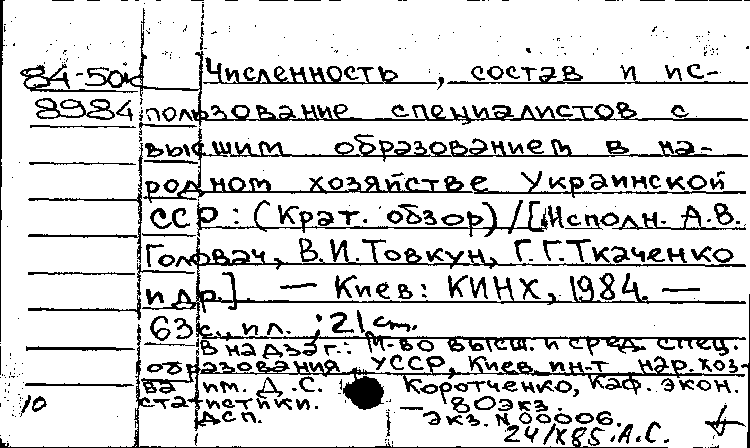 84-50к Численность, состав и ис-
8984 пользование специалистов с
высшим образованием в на-
родном хозяйстве Украинской
ССР : (Крат. обзор) / [Исполн. А.В.
Головач, В.И. Товкун, Г.Г. Ткаченко
и др.]. — Киев : КИНХ, 1984. —
63 с., ил. ; 21 cm.
В надзаг.: М-во высш. и сред. спец.
образования УССР, Киев. ин-т нар. хоз-
ва им. Д.С. Коротченко, Каф. экон.
10 статистики. — 80 экз.
ДСП. Экз. N 00006.
24/IX85. А.С.